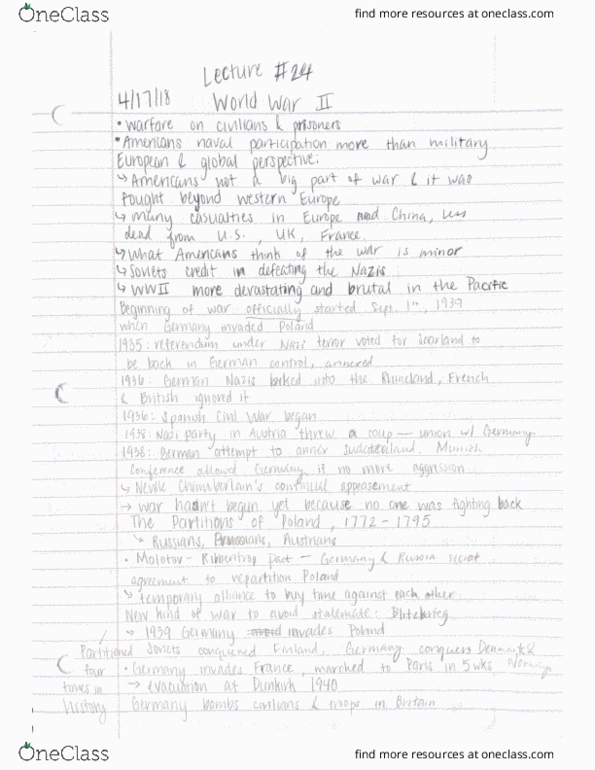 OneClass
find more resources at oneclass.com
Lecture #24
4/17/18 World War II
• warfare on civilians & prisoners
• Americans naval participation more than military
European & global perspective:
↳ Americans not a big part of war & it was
fought beyond western Europe
↳ many casualties in Europe and China, less
dead from U.S., UK, France.
↳ What Americans think of the war is minor
↳ Soviets credit in defeating the Nazis
↳ WWII more devastating and brutal in the Pacific
Beginning of war officially started Sept. 1st, 1939
when Germany invaded Poland
1935: referendum under Nazi terror voted for Saarland to
be back in German control, annexed
1936: German Nazis barked into the Rhineland, French
& British ignored it
1936: Spanish Civil War began
1938: Nazi party in Austria threw a coup — union w/ Germany
1938: German attempt to annex Sudetenland, Munich
Conference allowed Germany if no more aggression
↳ Neville Chamberlain's continual appeasement
→ war hadn't begun yet because no one was fighting back
The Partitions of Poland, 1772-1795
↳ Russians, Prussians, Austrians
• Molotov-Ribbentrop pact — Germany & Russia secret
agreement to repartition Poland
↳ temporary alliance to buy time against each other
New kind of war to avoid stalemate: Blitzkrieg
→ 1939 Germany invades Poland
Partitioned four times in history
Soviets conquered Finland, Germany conquers Denmark & Norway
• Germany invades France, marched to Paris in 5 wks
→ evacuation at Dunkirk 1940
Germany bombs civilians & troops in Britain
OneClass
find more resources at oneclass.com